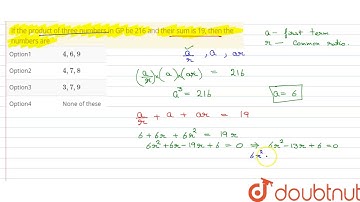 If the product of three numbers in GP be 216 and their sum is 19, then the
numbers are
Option1 4, 6, 9
Option2 4, 7, 8
Option3 3, 7, 9
Option4 None of these
a - first term
r - common ratio.
a/r , a , ar
(a/r) x (a) x (ar) = 216
a³ = 216
a = 6
a/r + a + ar = 19
6 + 6r + 6r² = 19r
6r² + 6r - 19r + 6 = 0 ⇒ 6r² - 13r + 6 = 0
6r² -
doubtnut